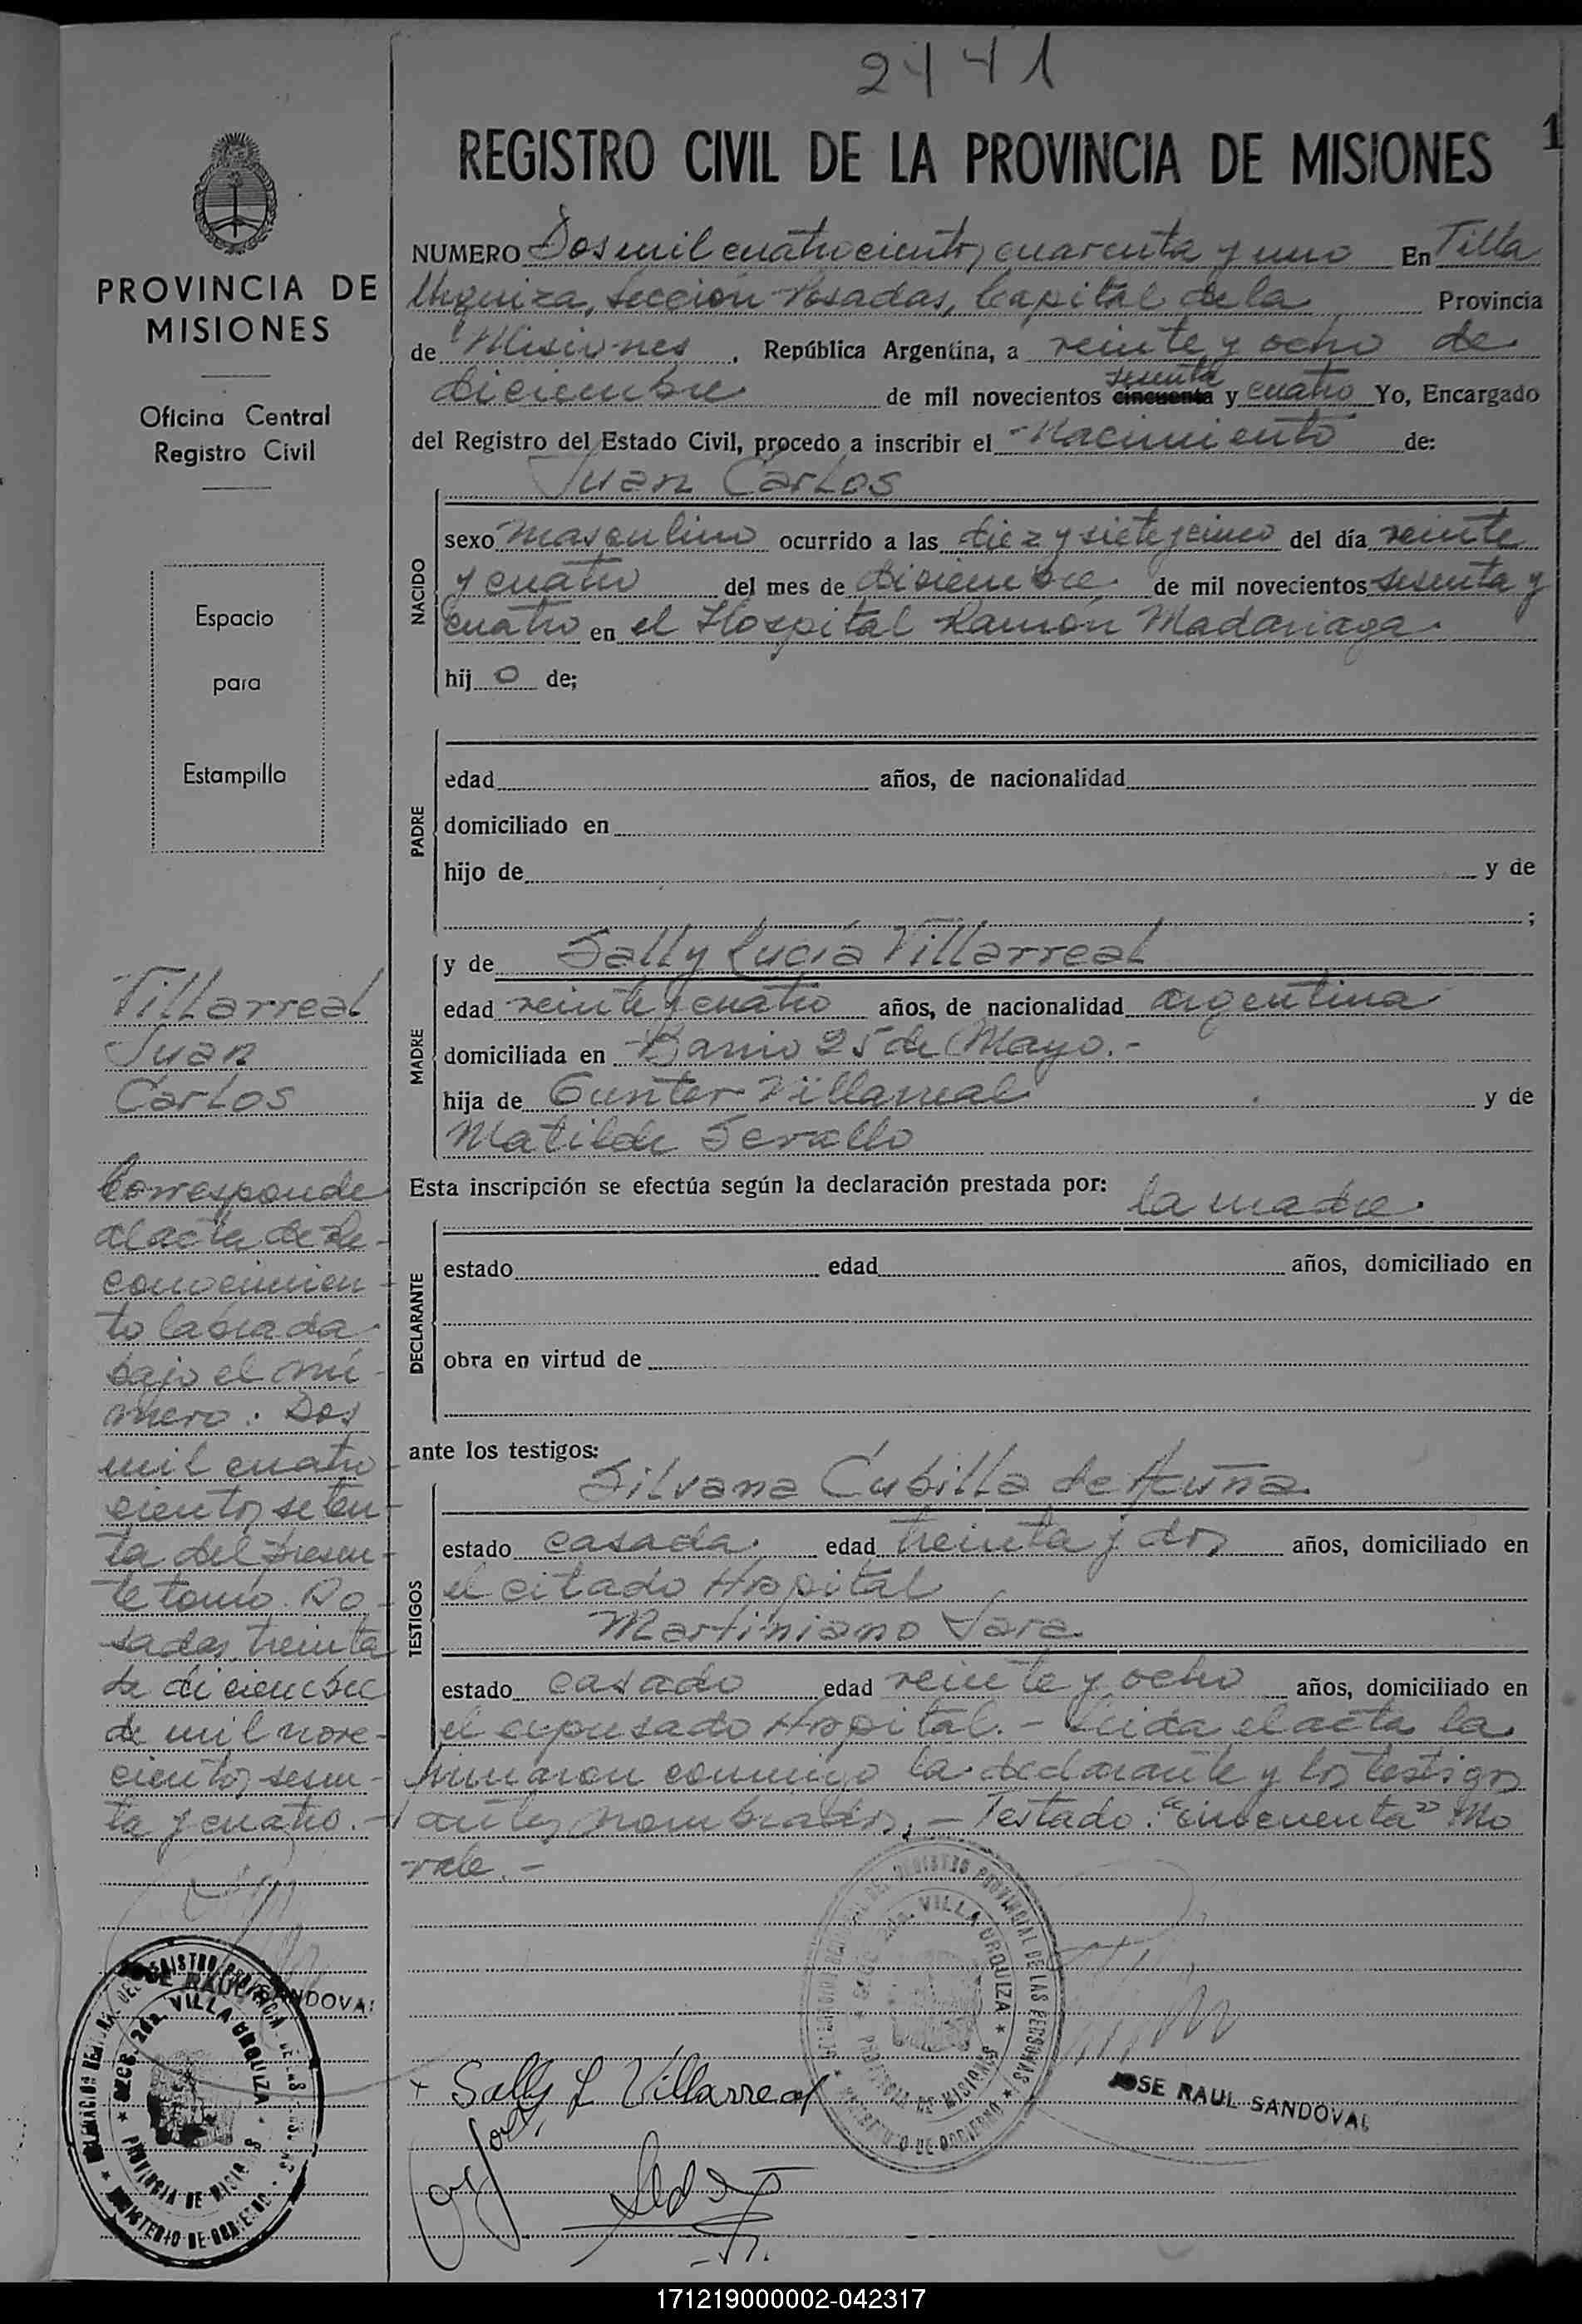 2441
1
REGISTRO CIVIL DE LA PROVINCIA DE MISIONES
PROVINCIA DE
MISIONES
Oficina Central
Registro Civil
Espacio
para
Estampilla
NUMERO Dos mil cuatrocientos cuarenta y uno En Villa
Urquiza, Sección Posadas, Capital de la Provincia
de Misiones, República Argentina, a veinte y ocho de
sesenta
diciembre de mil novecientos cincuenta y cuatro Yo, Encargado
del Registro del Estado Civil, procedo a inscribir el Nacimiento de:
Juan Carlos
NACIDO
sexo masculino ocurrido a las diez y siete y cinco del día veinte
y cuatro del mes de diciembre de mil novecientos sesenta y
cuatro en el Hospital Ramón Madariaga.
hij o de;
PADRE
edad años, de nacionalidad
domiciliado en
hijo de y de
;
MADRE
y de Sally Lucía Villarreal
edad veinte y cuatro años, de nacionalidad argentina
domiciliada en Barrio 25 de Mayo.-
hija de Gunter Villarreal y de
Matilde Sevallo
Esta inscripción se efectúa según la declaración prestada por: la madre.
DECLARANTE
estado edad años, domiciliado en
obra en virtud de
ante los testigos:
TESTIGOS
Silvana Cubilla de Acuña
estado casada. edad treinta y dos años, domiciliado en
el citado Hospital
Martiniano Jara
estado casado edad veinte y ocho años, domiciliado en
el expresado Hospital.- Leída el acta la
firmaron conmigo la declarante y los testigos
antes nombrados.- Testado: "cincuenta" No
vale.-
Villarreal
Juan
Carlos
Corresponde
al acta de Re-
conocimien-
to labrada
bajo el nú-
mero: Dos
mil cuatro-
cientos seten-
ta del presen-
te tomo. Po-
sadas, treinta
de diciembre
de mil nove-
cientos sesen-
ta y cuatro.-
JOSE RAUL SANDOVAL
VILLA URQUIZA
PROVINCIA DE MISIONES
MINISTERIO DE GOBIERNO
REGISTRO PROVINCIAL DE LAS PERSONAS
VILLA URQUIZA
PROVINCIA DE MISIONES
MINISTERIO DE GOBIERNO
Sally L Villarreal
JOSE RAUL SANDOVAL
171219000002-042317